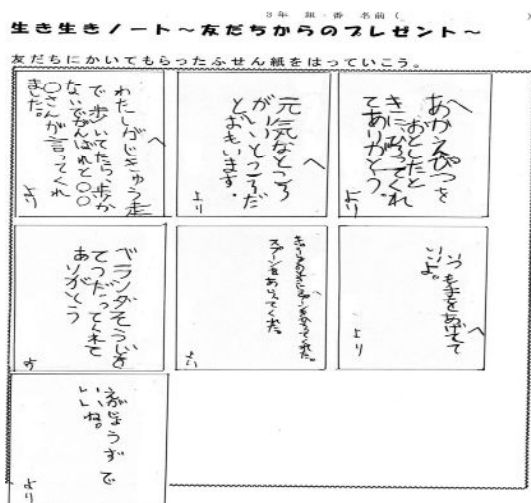 3年 組・番 名前( )
生き生きノート～友だちからのプレゼント～
友だちにかいてもらったふせん紙をはっていこう。
へ
あかえんぴつを
おとしたと
きに、ひろってくれ
てありがとう。
より
へ
元気なところ
がいいところだ
とおもいます。
より
へ
わたしがじきゅう走
で歩いてたら、歩か
ないでがんばれと○○
○さんが言ってくれ
ました。
より
へ
いつも手をあげてて
いいよ。
より
スプーンをあらってくれた。
より
ベランダそうじを
てつだってくれて
ありがとう
より
えがじょうずで
いいね。
より